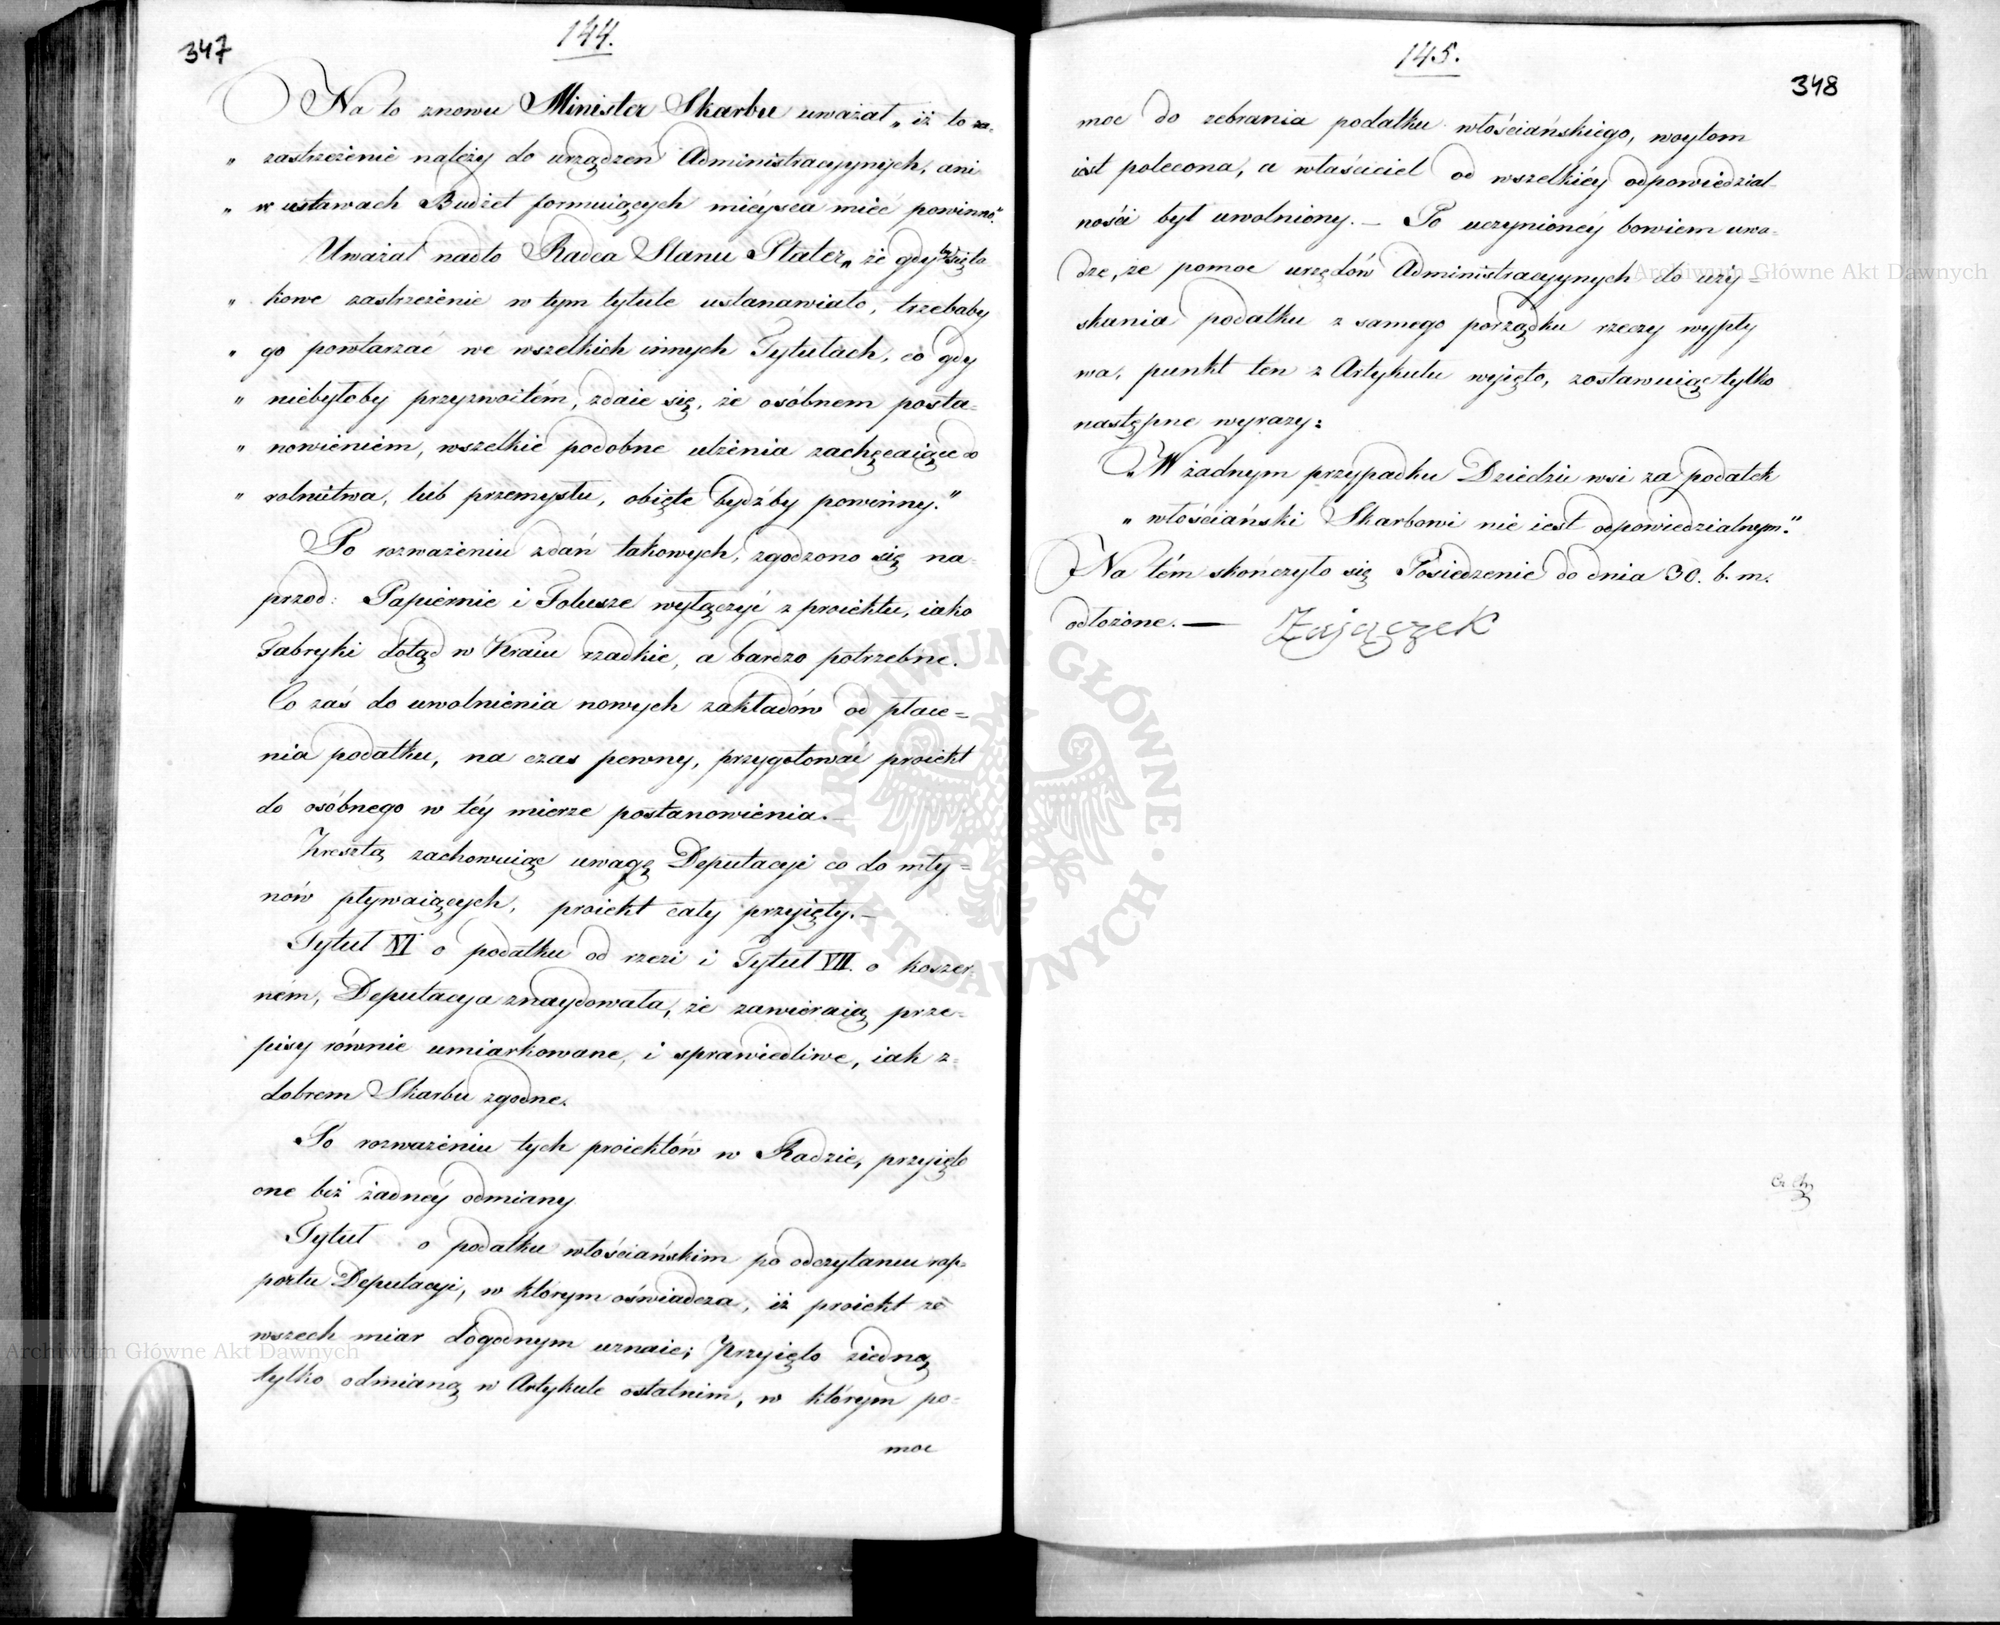 347
144.
Na to znowu Minister Skarbu uważał „ iż to za-
„ zastrzeżenie należy do urządzeń Administracyjnych, ani
„ w ustawach Budżet formuiących mieysca mieć powinno."
Uważał nadto Radca Stanu Plater „ że gdy
„ kowe zastrzeżenie w tym tytule ustanawiało, trzebaby
„ go powtarzać we wszelkich innych Tytułach, co gdy
„ niebyłoby przyzwoitém, zdaie się, że osóbnem posta-
„ nowieniem, wszelkie podobne ulżenia zachęcaiące do
„ rolnictwa, lub przemysłu, obięte bydźby powinny."
Po rozważeniu zdań takowych, zgodzono się na-
przod: Papiernie i Folusze wyłączyć z proiektu, iako
Fabryki dotąd w Kraiu rzadkie, a bardzo potrzebne.
Co zaś do uwolnienia nowych zakładów od płace=
nia podatku, na czas pewny, przygotować proiekt
do osóbnego w téy mierze postanowienia.—
Zresztą zachowuiąc uwagę Deputacyi co do mły=
nów pływaiących, proiekt cały przyięty.—
Tytuł VI o podatku od rzezi i Tytuł VII. o koszer-
ném, Deputacya znaydowała, że zawieraią prze-
pisy równie umiarkowane, i sprawiedliwe, iak z-
dobrem Skarbu zgodne.
Po rozważeniu tych proiektów w Radzie, przyięte
one bez żadnéy odmiany
Tytuł o podatku włościańskim po odczytaniu rap-
portu Deputacyi, w którym oświadcza, iż proiekt ze
wszech miar dogodnym uznaie; Przyięto ziedną
tylko odmianą w Artykule ostatnim, w którym po-
moc
145.
348
moc do zebrania podatku włościańskiego, woytom
iest polecona, a właściciel od wszelkiéy odpowiedzial-
ności był uwolniony.— Po uczynionéy bowiem uwa-
dze, że pomoc urzędów Administracyjnych do uzy=
skania podatku z samego porządku rzeczy wypły
wa, punkt ten z Artykułu wyięto, zostawuiąc tylko
następne wyrazy:
„ W żadnym przypadku Dziedzic wsi za podatek
„ włościański Skarbowi nie iest odpowiedzialnym."
Na tém skończyło się Posiedzenie do dnia 30. b. m.
odłożone.— Zajączek
Archiwum Główne Akt Dawnych
Archiwum Główne Akt Dawnych
ARCHIWUM GŁÓWNE · AKT DAWNYCH ·